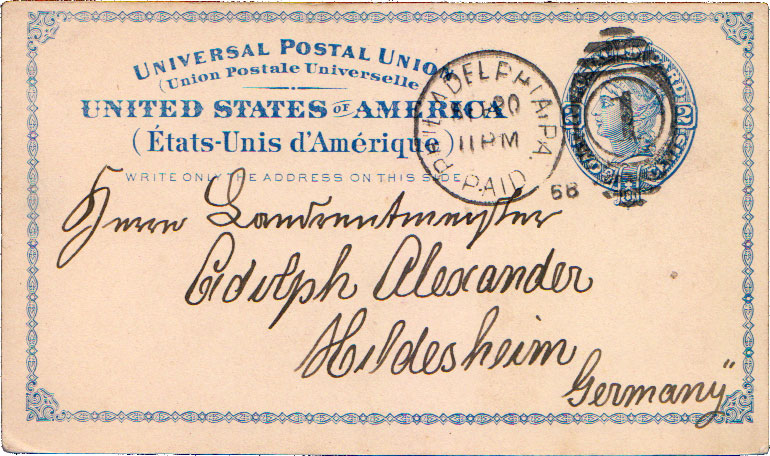 UNIVERSAL POSTAL UNION
(Union Postale Universelle)
UNITED STATES OF AMERICA
(États-Unis d'Amérique)
WRITE ONLY THE ADDRESS ON THIS SIDE
PHILADELPHIA, PA.
20
11 PM
PAID
6B
POSTAL CARD
Herrn Landrentmeister
Adolph Alexander
Hildesheim
Germany"